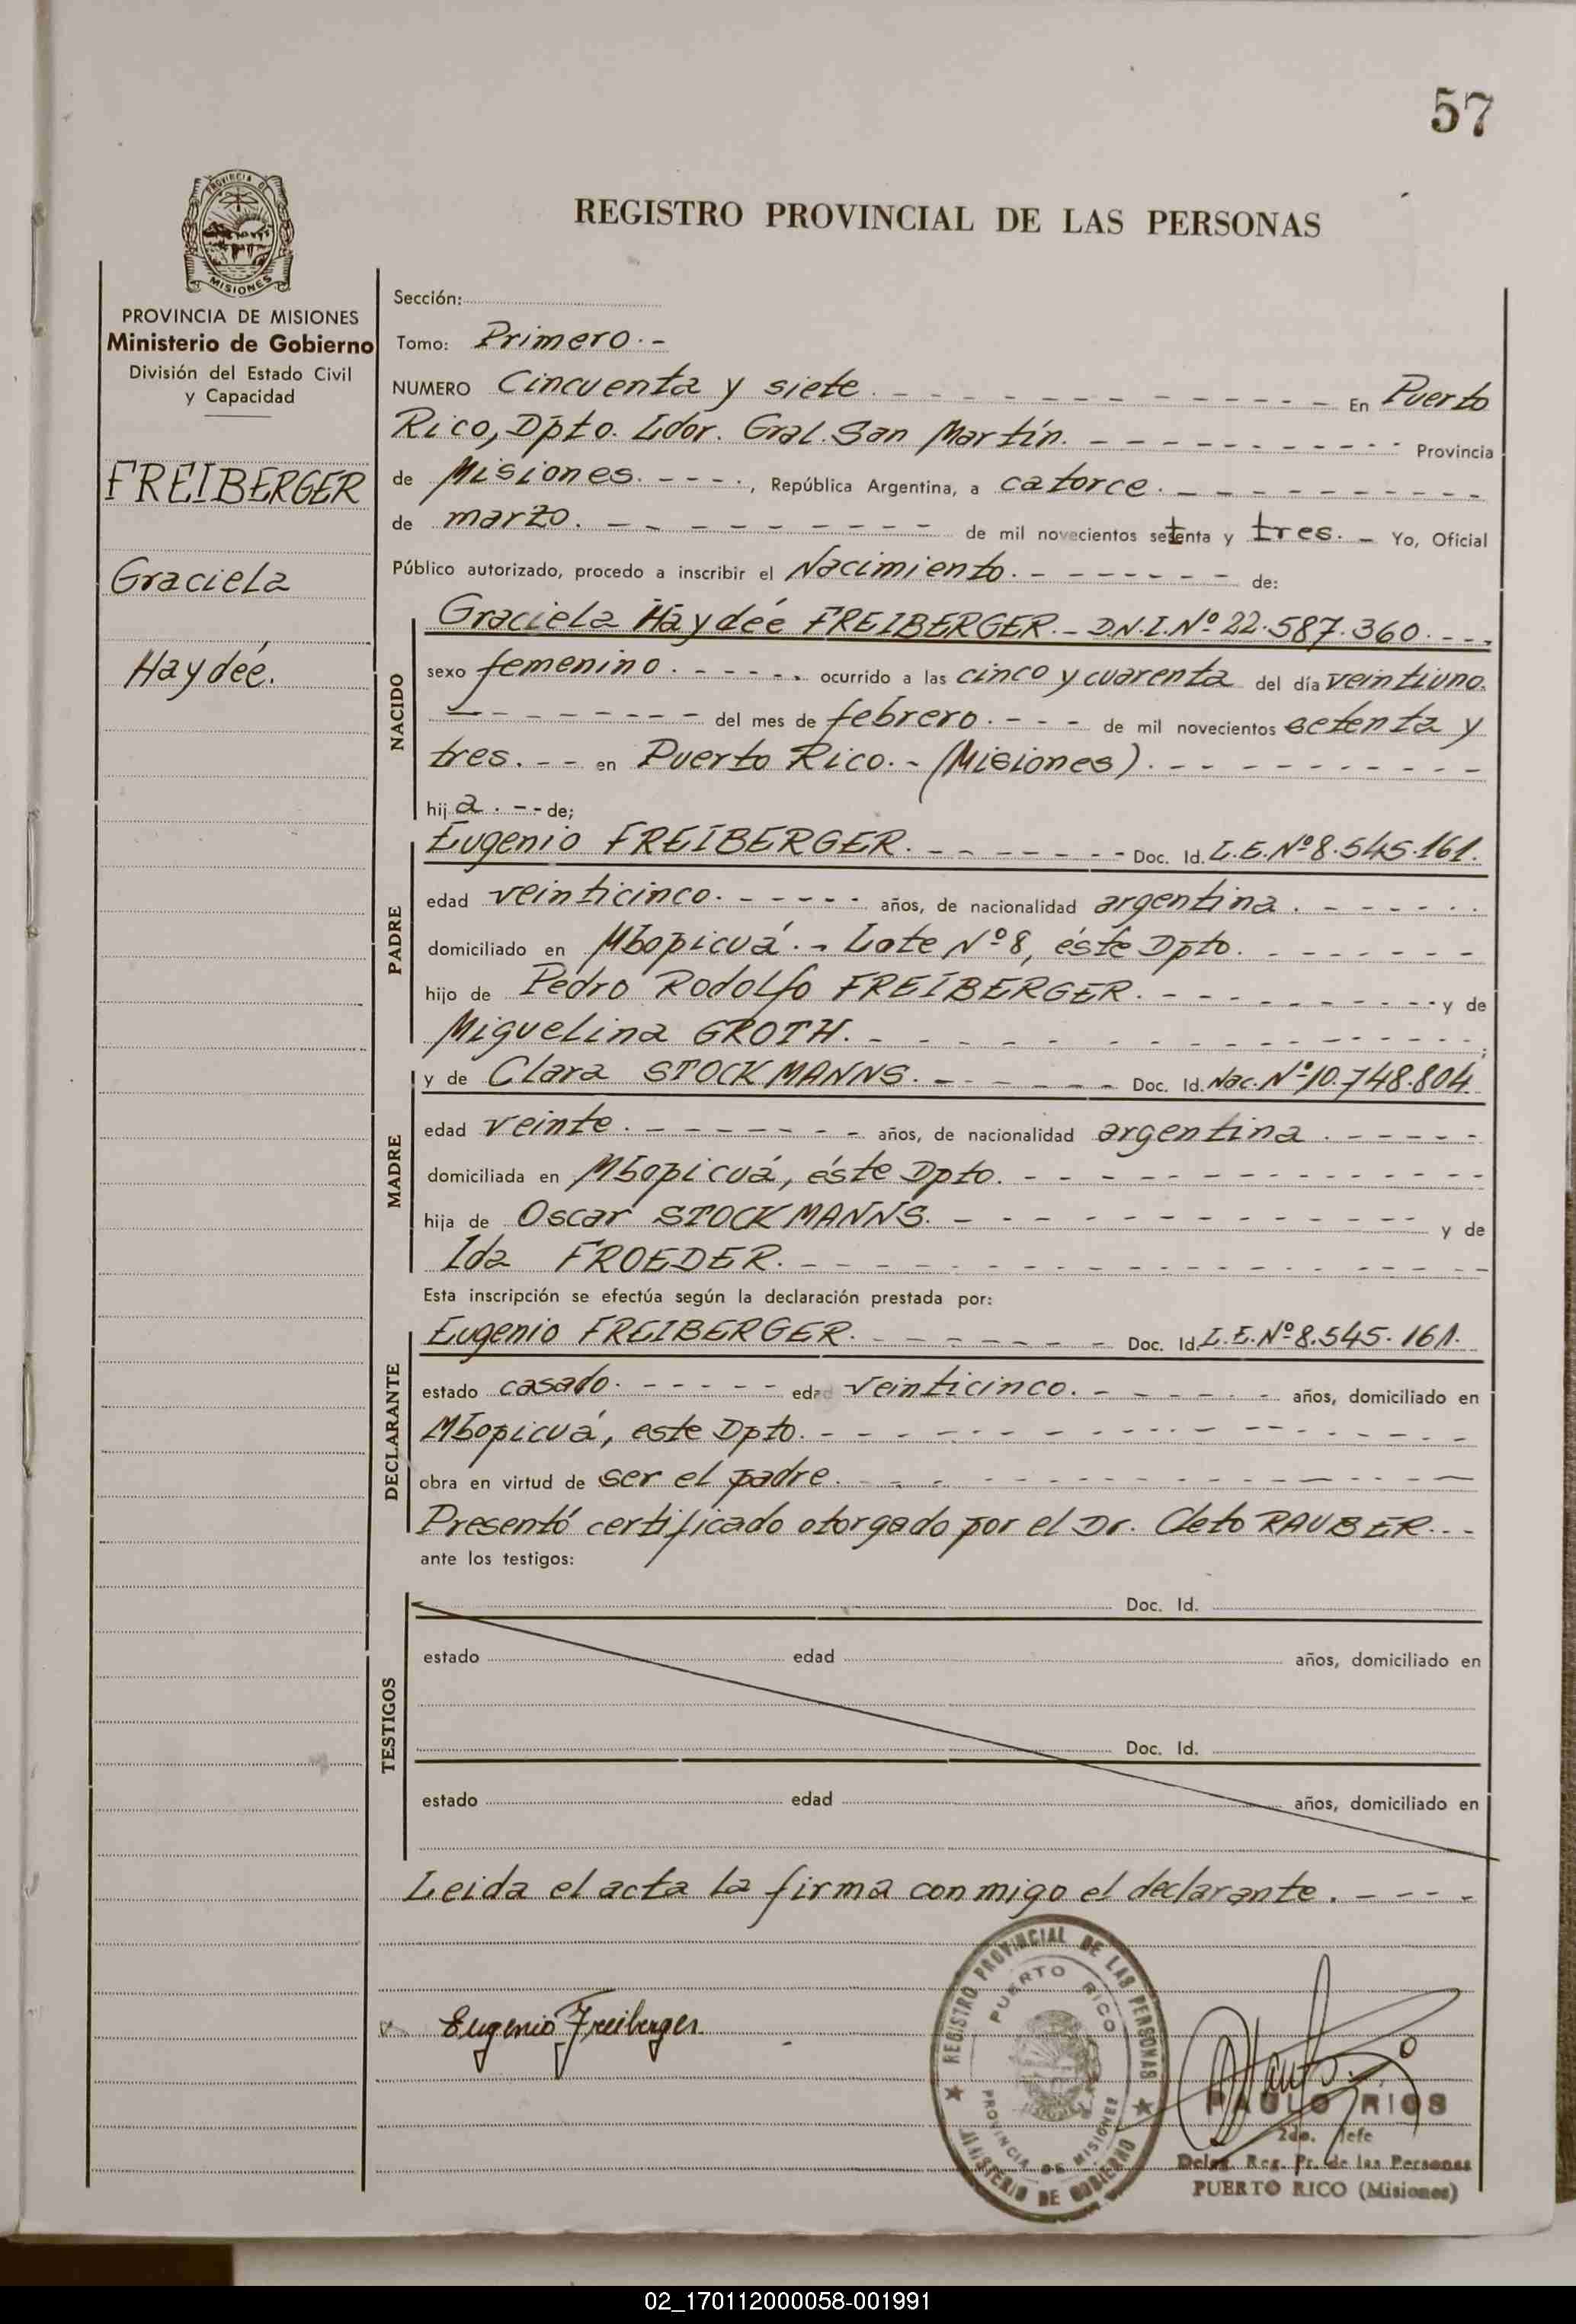 57
PROVINCIA DE
MISIONES
REGISTRO PROVINCIAL DE LAS PERSONAS
PROVINCIA DE MISIONES
Ministerio de Gobierno
División del Estado Civil
y Capacidad
FREIBERGER
Graciela
Haydée.
Sección:
Tomo: Primero.-
NUMERO Cincuenta y siete. - - - - - - - - - - En Puerto
Rico, Dpto. Ldor. Gral. San Martín. - - - - - - - - - - Provincia
de Misiones. - - - -, República Argentina, a catorce. - - - - - - - - - -
de marzo. - - - - - - - - - de mil novecientos setenta y tres. - Yo, Oficial
Público autorizado, procedo a inscribir el Nacimiento. - - - - - - - de:
NACIDO
Graciela Haydée FREIBERGER. - D.N.I. Nº 22.587.360. - - -
sexo femenino. - - - - - ocurrido a las cinco y cuarenta del día veintiuno.
- - - - - - - - del mes de febrero. - - - de mil novecientos setenta y
tres. - - en Puerto Rico. - (Misiones). - - - - - - - - - -
hija. - - de;
PADRE
Eugenio FREIBERGER. - - - - - - - Doc. Id. L.E. Nº 8.545.161.
edad veinticinco. - - - - - años, de nacionalidad argentina. - - - - - -
domiciliado en Mbopicuá. - Lote Nº 8, éste Dpto. - - - - - - -
hijo de Pedro Rodolfo FREIBERGER. - - - - - - - - - - y de
Miguelina GROTH. - - - - - - - - - - - - - ;
MADRE
y de Clara STOCKMANNS. - - - - - - Doc. Id. Nac. Nº 10.748.804.
edad veinte. - - - - - - - - años, de nacionalidad argentina. - - - - -
domiciliada en Mbopicuá, éste Dpto. - - - - - - - - - - - -
hija de Oscar STOCKMANNS. - - - - - - - - - - - - y de
Ida FROEDER. - - - - - - - - - - - - - - -
Esta inscripción se efectúa según la declaración prestada por:
DECLARANTE
Eugenio FREIBERGER. - - - - - - - Doc. Id. L.E. Nº 8.545.161.
estado casado. - - - - - edad veinticinco. - - - - - - años, domiciliado en
Mbopicuá, este Dpto. - - - - - - - - - - - - - - -
obra en virtud de ser el padre. - - - - - - - - - - - -
Presentó certificado otorgado por el Dr. Cleto RAUBER. - - -
ante los testigos:
TESTIGOS
Doc. Id.
estado edad años, domiciliado en
Doc. Id.
estado edad años, domiciliado en
Leida el acta la firma conmigo el declarante. - - - -
Eugenio Freiberger
REGISTRO PROVINCIAL DE LAS PERSONAS
PUERTO RICO
PROVINCIA DE MISIONES
MINISTERIO DE GOBIERNO
PAULO RIOS
2do. Jefe
Deleg. Reg. Pr. de las Personas
PUERTO RICO (Misiones)
02_170112000058-001991